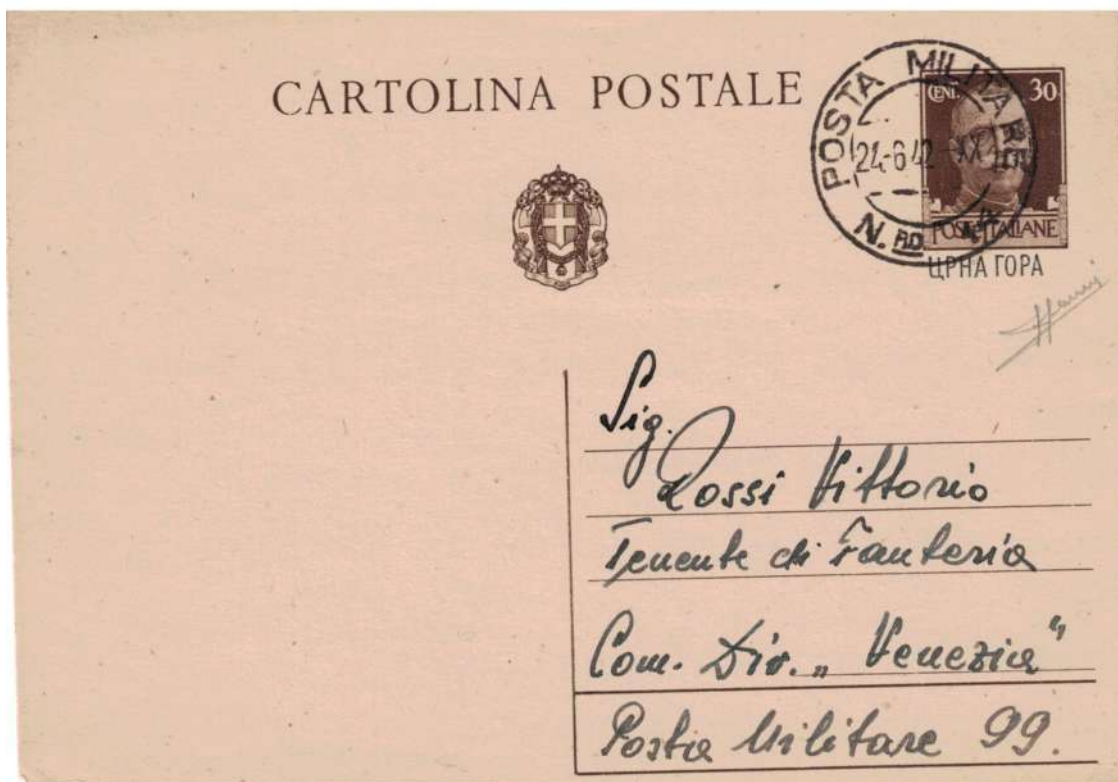 CARTOLINA POSTALE
POSTA MILITARE
24-6 42-XX
N. RO
CENT. 30
POSTE ITALIANE
ЦРНА ГОРА
Sig.
Rossi Vittorio
Tenente di Fanteria
Com. Div. „ Venezia"
Posta Militare 99.